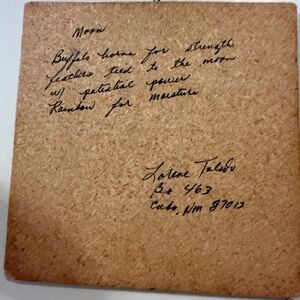 Moon
Buffalo horns for strength
feathers tied to the moon
w/ potential power
Rainbow for moisture
Lorene Toledo
Box 463
Cuba, NM 87013